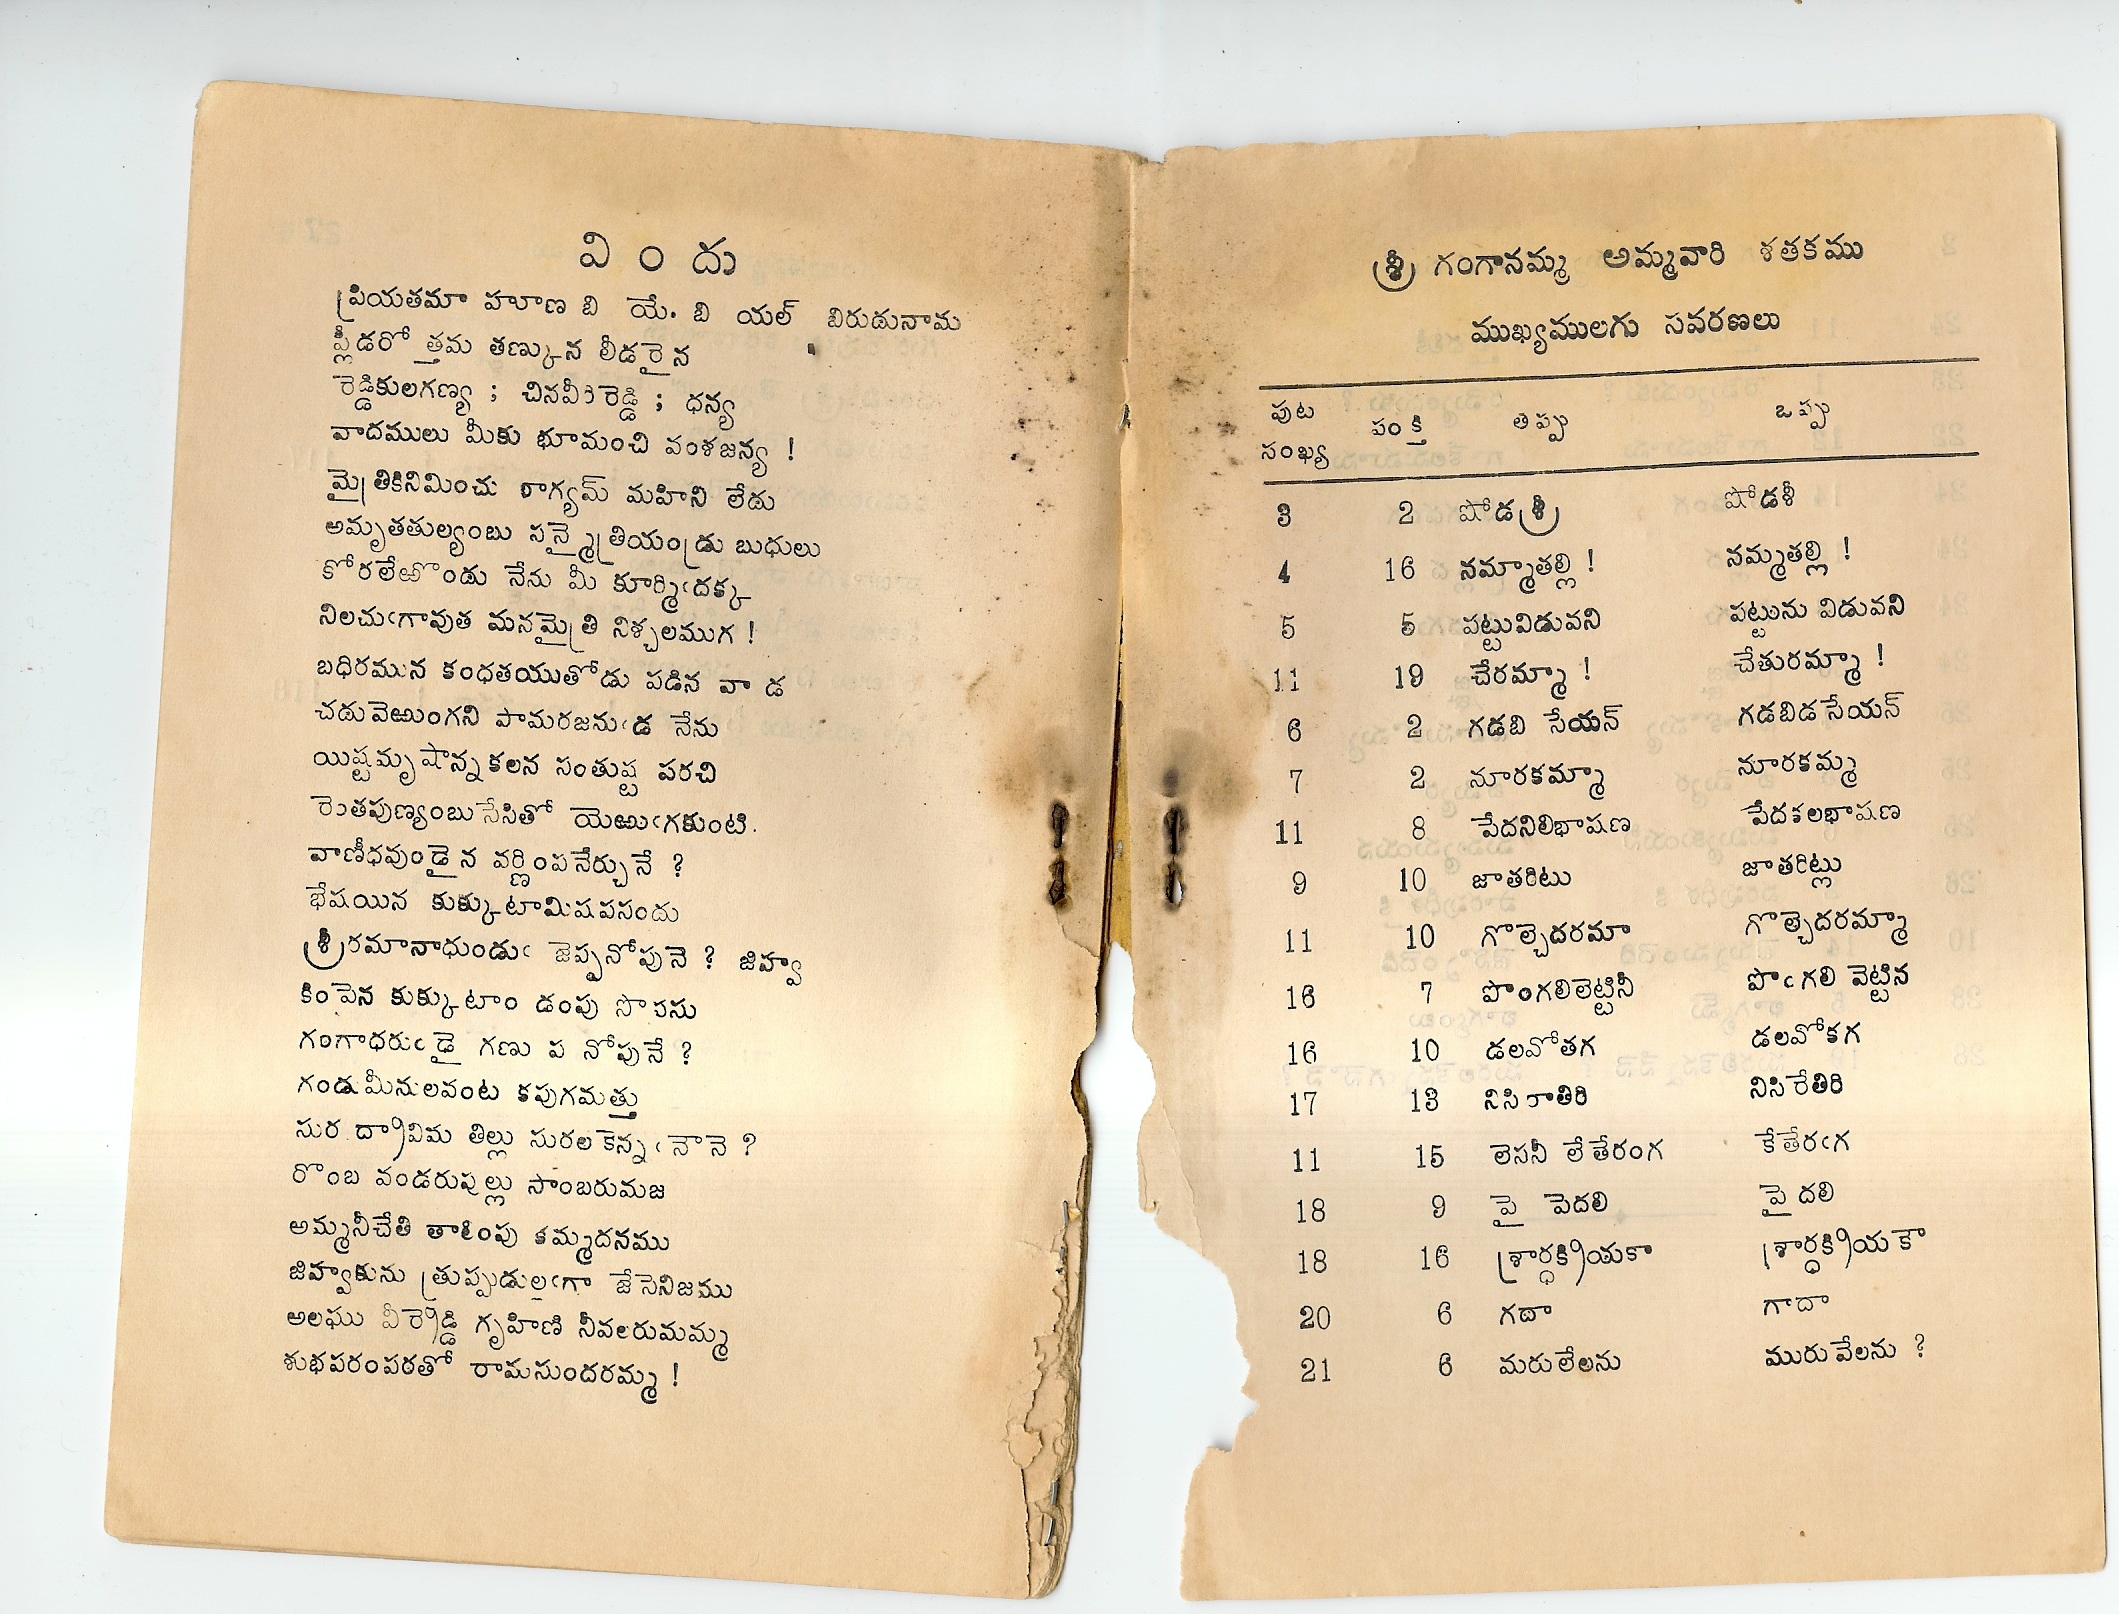 విందు
ప్రియతమా హూణ బి యే. బి యల్ బిరుదునామ
ప్లీడరో త్తమ తణ్కున లీడరైన
రెడ్డికులగణ్య ; చినవీరరెడ్డి ; ధన్య
వాదములు మీకు భూమంచి వంశజన్య !
మైత్రికినిమించు భాగ్యమ్ మహిని లేదు
అమృతతుల్యంబు సన్మైత్రియండ్రు బుధులు
కోరలేఱొండు నేను మీ కూర్మిఁదక్క
నిలచుఁగావుత మనమైత్రి నిశ్చలముగ !
బధిరమున కంధతయుతోడు పడిన వా డ
చదువెఱుంగని పామరజనుఁడ నేను
యిష్టమృషాన్నకలన సంతుష్ట పరచి
రెంతపుణ్యంబుసేసితో యెఱుఁగకుంటి.
వాణీధవుండైన వర్ణింపనేర్చునే ?
భేషయిన కుక్కుటామిషపసందు
శ్రీరమానాధుండుఁ జెప్పనోపునె ? జిహ్వ
కింపైన కుక్కుటాం డంపు సొరసు
గంగాధరుఁ డై గణు ప నోపునే ?
గండుమీనులవంట కపుగమత్తు
సుర ద్రావిమ తిల్లు సురలకెన్నఁ నౌనె ?
రొంబ వండరుపుల్లు సాంబరుమజ
అమ్మనీచేతి తాళింపు కమ్మదనము
జిహ్వకును త్రుప్పుడులఁగా జేసెనిజము
అలఘు వీర్రెడ్డి గృహిణి నీవలరుమమ్మ
శుభపరంపరతో రామసుందరమ్మ !
శ్రీ గంగానమ్మ అమ్మవారి శతకము
ముఖ్యములగు సవరణలు
పుట సంఖ్య పంక్తి తప్పు ఒప్పు
3 2 షోడశ్రీ షోడశీ
4 16 నమ్మాతల్లి ! నమ్మతల్లి !
5 5 పట్టువిడువని పట్టును విడువని
11 19 చేరమ్మా ! చేతురమ్మా !
6 2 గడబి సేయన్ గడబిడసేయన్
7 2 నూరకమ్మా నూరకమ్మ
11 8 పేదనిలిభాషణ పేదకలభాషణ
9 10 జాతరిటు జాతరిట్లు
11 10 గొల్చెదరమా గొల్చెదరమ్మా
16 7 పొంగలిలెట్టినీ పొఁగలి వెట్టిన
16 10 డలవోతగ డలవోకగ
17 13 నిసిరాతిరి నిసిరేతిరి
11 15 లెసనీ లేతేరంగ కేతేరఁగ
18 9 పై పెదలి పై దలి
18 16 శ్రార్ధక్రియకా శ్రార్ధక్రియకౌ
20 6 గదా గాదా
21 6 మరులేలను మురువేలను ?